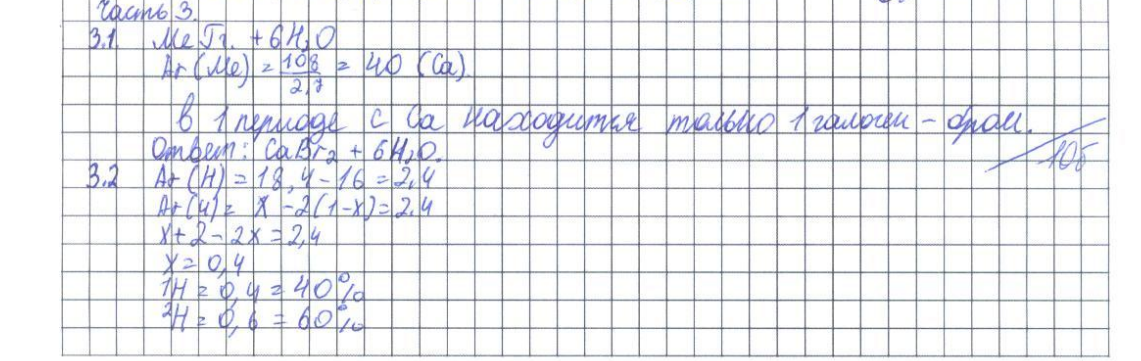 Часть 3.
3.1. Ме Гг. + 6H₂O
Ar(Me) = 108/2,7 = 40 (Ca).
в 1 периоде с Ca находится только 1 галоген - бром.
Ответ: CaBr₂ + 6H₂O.
10б
3.2 Ar(H) = 18,4-16 = 2,4
Ar(Ч) = X - 2(1-X) = 2,4
X+2-2X = 2,4
X = 0,4
¹H = 0,4 = 40%
²H = 0,6 = 60%